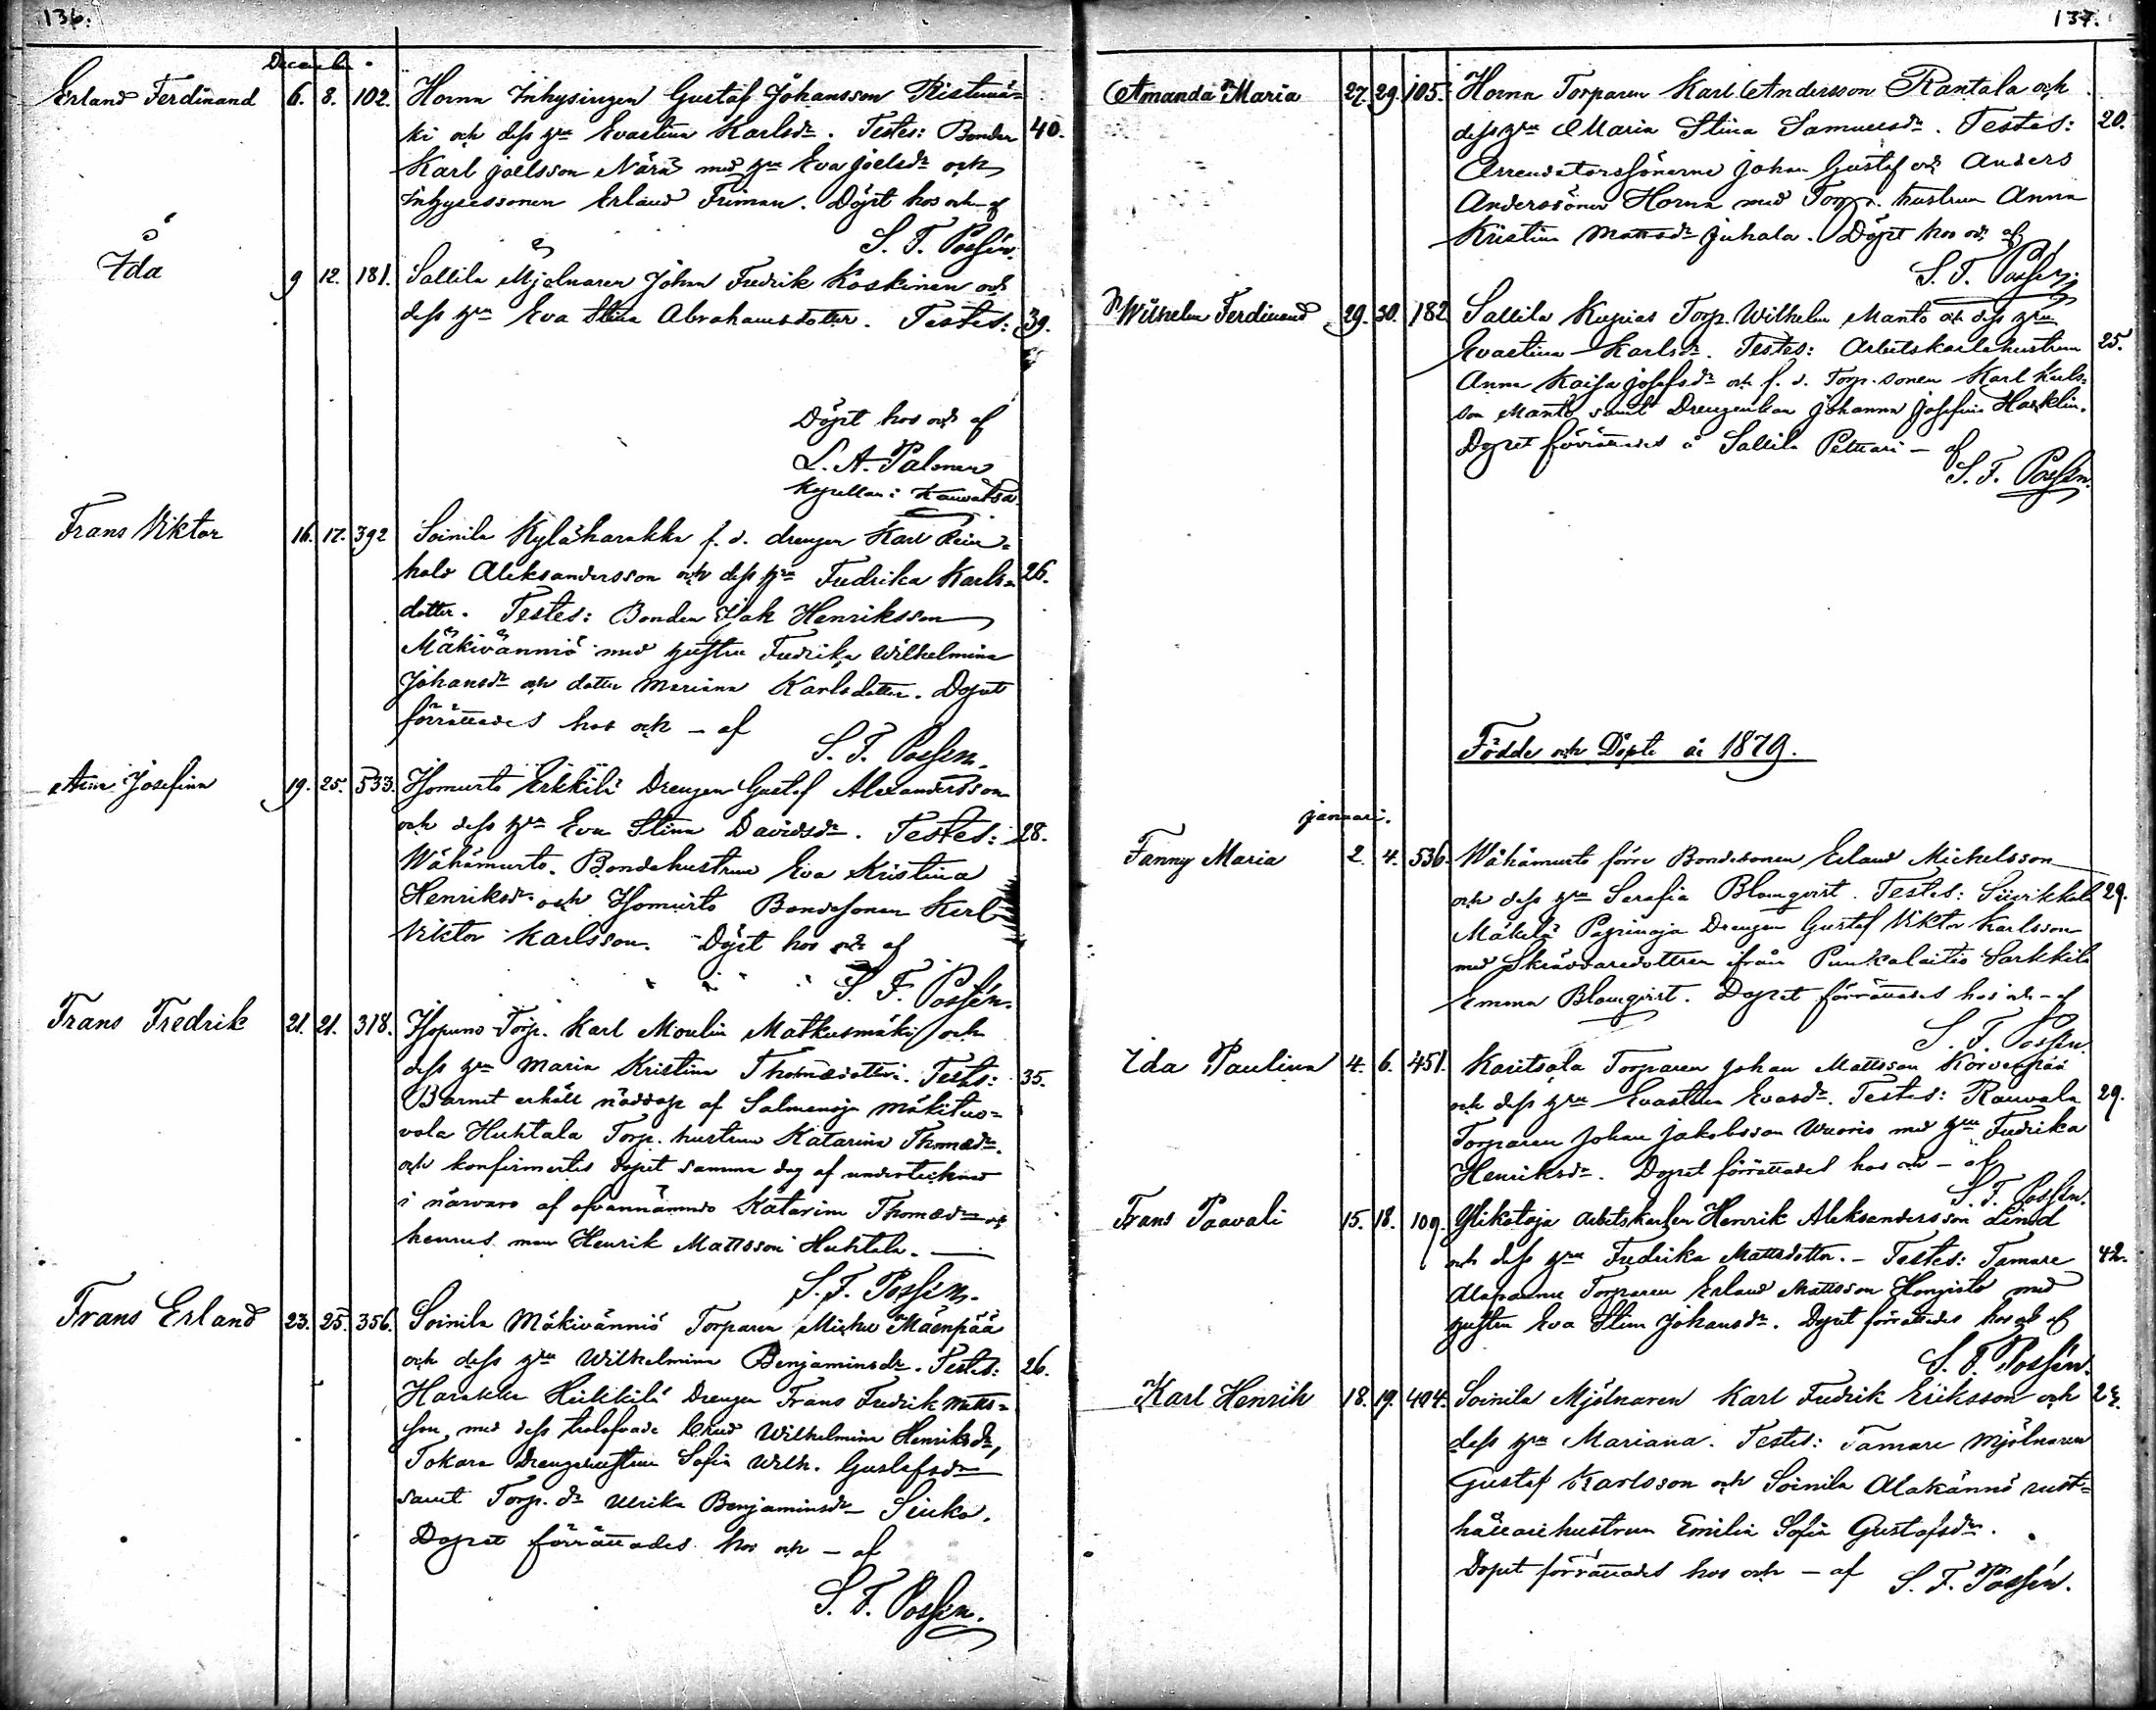 136.
December.
Erland Ferdinand 6. 8. 102. Honna Inhysingen Gustaf Johansson Ristimä=
ki och dess hru Evastina Karlsdr. Testes: Bonden 40.
Karl Joelsson Närä med hru Eva Joelsdr och
Inhysessonen Erland Friman. Döpt hos och – af
S. F. Possén.
Ida 9 12. 181. Sallila Mjölnaren Johan Fredrik Koskinen och
dess hru Eva Stina Abrahamsdotter. Testes: 39.
Döpt hos och af
L. A. Palmen
Kapellan i Kauvatsa
Frans Viktor 16. 17. 392 Soinila Kyläharakka f. d. drengen Karl Rein=
hold Aleksandersson och dess hru Fredrika Karls= 26.
dotter. Testes: Bonden Isak Henriksson
Mäkivänniö med hustru Fredrika Wilhelmina
Johansdr och dotter Mariana Karlsdotter. Dopet
förrättades hos och – af
S. F. Possén.
Josefina 19. 25. 533. Isomurto Erkkilä Drengen Gustaf Alexandersson
och dess hru Eva Stina Davidsdr. Testes: 28.
Wähämurto Bondehustrun Eva Kristina
Henriksdr och Isomurto Bondesonen Karl
Viktor Karlsson. Döpt hos och af
S. F. Possén.
Frans Fredrik 21. 21. 318. Torp. Karl Moulin Matkusmäki och
dess hru Maria Kristina Thomædotter. Testes: 35.
Barnet erhöll nöddop af Salmenoja mäkituo=
vola Huhtala Torp. hustrun Katarina Thomædr.
och konfirmertes dopet samma dag af undertecknad
i närvaro af ofvannämnde Katarina Thomædr och
hennes man Henrik Mattsson Huhtala.
S. F. Possén.
Frans Erland 23. 25. 356. Soinila Mäkivänniö Torparen Mäenpää
och dess hru Wilhelmina Benjaminsdr. Testes: 26.
Harakka Heikkilä Drengen Frans Fredrik Matts=
son, med dess trolofvade Wilhelmina Henriksdr,
Tokara Drengehustrun Sofia Wilh. Gustafsdr
samt Torp. dr Ulrika Benjaminsdr
Dopet förrättades hos och – af
S. F. Possén.
137.
Amanda Maria 27. 29. 105. Honna Torparen Karl Andersson Rantala och
dess hru Maria Stina Samuelsdr. Testes: 20.
Arrendatorssönerna Johan Gustaf och Anders
Anderssöner Honna med Torp. hustrun Anna
Kristina Mattsdr Juhala. Döpt hos och af
S. F. Possén.
Wilhelm Ferdinand 29. 30. 182 Sallila Kupias Torp. Wilhelm Manto och dess hru
Evastina Karlsdr. Testes: Arbetskarlshustrun 25.
Anna Kaisa Josefsdr och f. d. Torp. sonen Karl Karls=
son Manto samt Johanna Josefina
Dopet förrättades å Sallila – af
S. F. Possén.
Födde och Döpte år 1879.
januari.
Fanny Maria 2. 4. 536. Wähämurto förre Bondesonen Erland Michelsson
och dess hru Serafia Blomqvist. Testes: 29.
Mäkelä Papinoja Drengen Gustaf Viktor Karlsson
med Skräddaredottren ifrån Punkalaitio Sarkkila
Emma Blomqvist. Dopet förrättades hos och – af
S. F. Possén.
Ida Paulina 4. 6. 451. Karitsala Torparen Johan Mattsson Korvenpää
och dess hru Evastina Evasdr. Testes: Rauvola 29.
Torparen Johan Jakobsson Wuorio med hru Fredrika
Henriksdr. Dopet förrättades hos och – af
S. F. Possén.
Frans Paavali 15. 18. 109. Ylikotoja Arbetskarlen Henrik Aleksandersson Lind
och dess hru Fredrika Mattsdotter. – Testes: Tamare 42.
Torparen Erland Mattsson Honjisto med
hustru Eva Stina Johansdr. Dopet förrättades hos och af
S. F. Possén.
Karl Henrik 18. 19. 404. Soinila Mjölnaren Karl Fredrik Eriksson och
dess hru Mariana. Testes: Tamare Mjölnaren
Gustaf Karlsson och Soinila Alakännö rust=
hållarehustrun Emilia Sofia Gustafsdr.
Dopet förrättades hos och – af S. F. Possén.